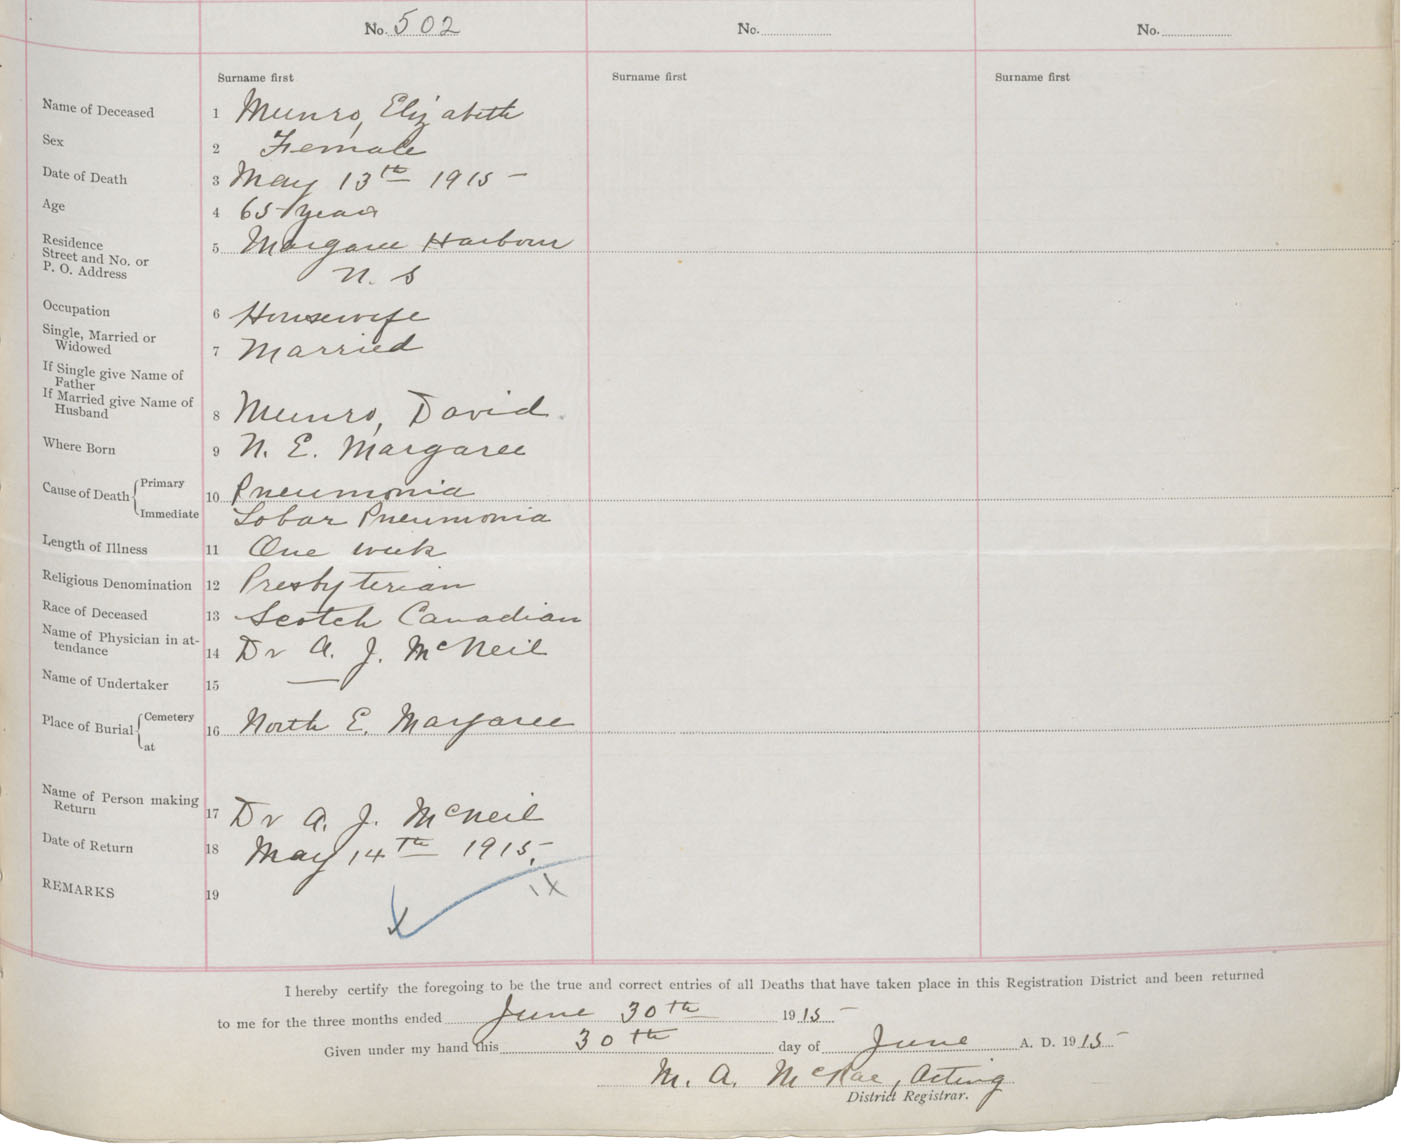 No. 502 No. No.
Surname first Surname first Surname first
Name of Deceased 1 Munro, Elizabeth
Sex 2 Female
Date of Death 3 May 13th 1915
Age 4 65 years
Residence
Street and No. or 5 Margaree Harbour
P. O. Address N. S
Occupation 6 Housewife
Single, Married or
Widowed 7 Married
If Single give Name of
Father
If Married give Name of
Husband 8 Munro, David
Where Born 9 N. E. Margaree
Cause of Death Primary 10 Pneumonia
Immediate Lobar Pneumonia
Length of Illness 11 One week
Religious Denomination 12 Presbyterian
Race of Deceased 13 Scotch Canadian
Name of Physician in at-
tendance 14 Dr A. J. McNeil
Name of Undertaker 15 —
Place of Burial Cemetery 16 North E. Margaree
at
Name of Person making
Return 17 Dr A. J. McNeil
Date of Return 18 May 14th 1915
REMARKS 19
I hereby certify the foregoing to be the true and correct entries of all Deaths that have taken place in this Registration District and been returned
to me for the three months ended June 30th 1915
Given under my hand this 30th day of June A. D. 1915
M. A. McRae, Acting
District Registrar.